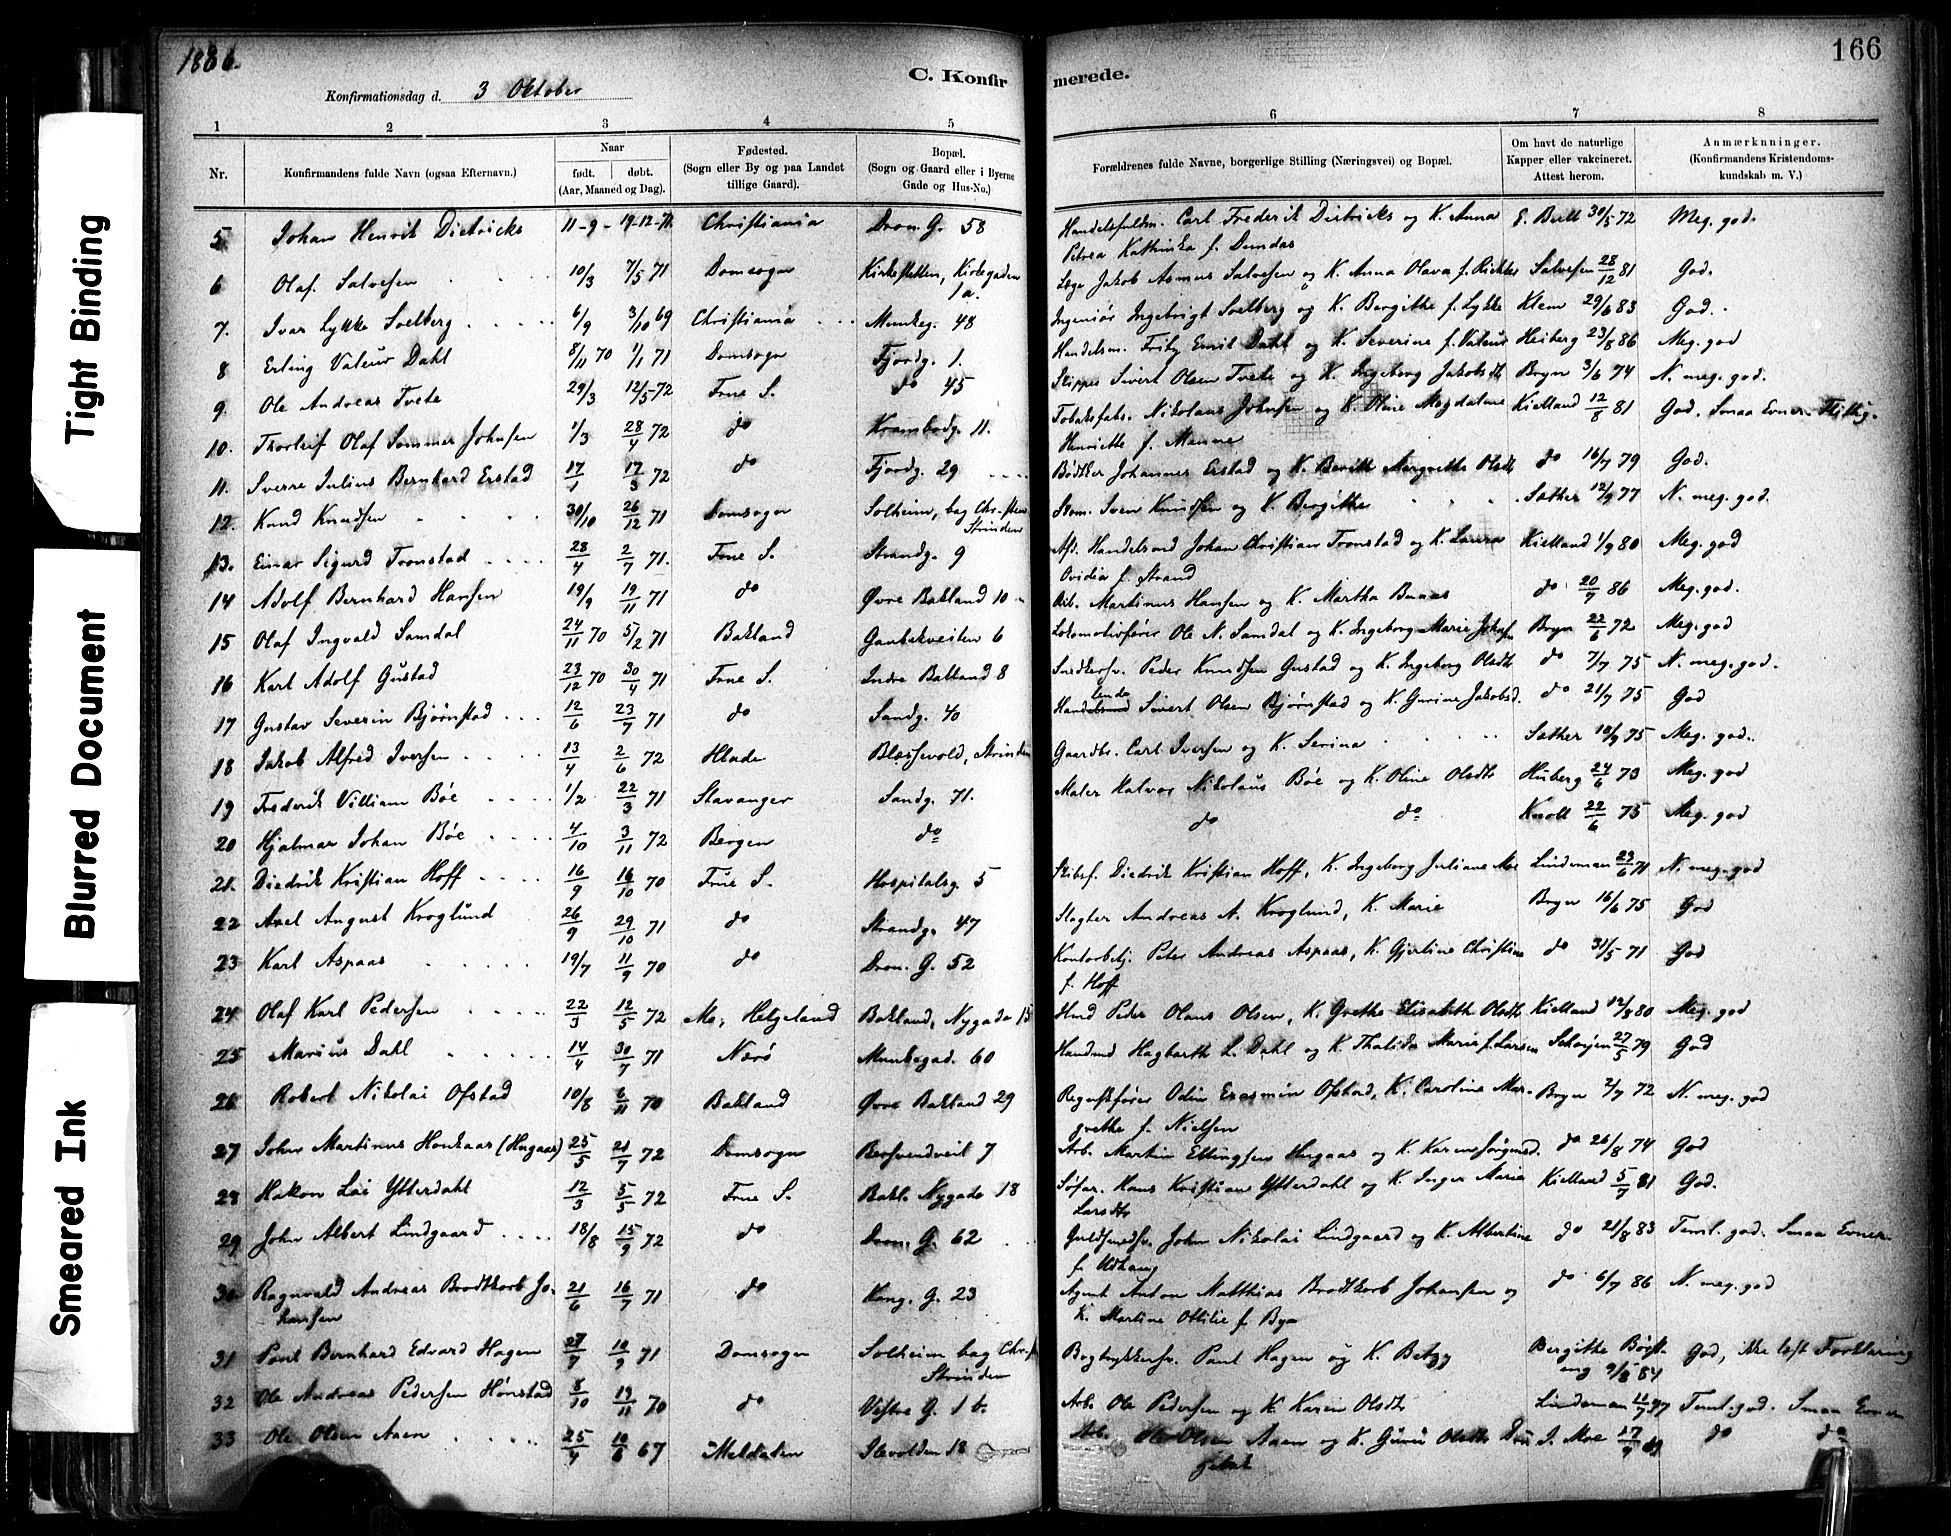 1886.
166
C. Konfirmerede.
Konfirmationsdag d. 3 Oktober
1 2 3 4 5 6 7 8
Nr. Konfirmandens fulde Navn (ogsaa Efternavn.) Naar født. døbt. (Aar, Maaned og Dag). Fødested. (Sogn eller By og paa Landet tillige Gaard). Bopæl. (Sogn og Gaard eller i Byerne Gade og Hus-No.) Forældrenes fulde Navne, borgerlige Stilling (Næringsvei) og Bopæl. Om havt de naturlige Kapper eller vakcineret. Attest herom. Anmærkninger. (Konfirmandens Kristendomskundskab m. V.)
5 Johan Henrik Dietrichs 11-9- 19-12-71 Christiania Dron. G. 58 Carl Frederik Dietrichs og K. Anna 30/5 72 Meg. god.
Petrea Kathinka f. Dundas
6 Olaf Salvesen 10/3 7/5 71 Domsogn Kirkegaden 1a. Læge Jakob Asmus Salvesen og K. Anna Olava f. Richter Salvesen 28/12 81 God.
7. Ivar Lykke Solberg 6/9 3/10 69 Christiania Munkeg. 48 Ingeniør Ingebrigt Solberg og K. Bergitte f. Lykke Klem 29/6 83 God.
8 Erling Valeur Dahl 8/11 70 1/1 71 Domsogn Fjordg. 1. Handelsm. Emil Dahl og K. Severine f. Valeur Heiberg 23/8 86 Meg. god
9. Ole Andreas Tvete 29/3 12/5-72 Frue S. do 45 Skipper Sivert Olsen Tvete og K. Ingeborg Jakobsdt. Bryn 3/6 74 N. meg. god.
10. Thorleif Olaf Sommer Johnsen 1/3 28/4 72 do Krambodg. 11. Nikolaus Johnsen og K. Oline Magdalene Kielland 12/8 81 God. Smaa Evner. Flittig.
Henriette f. Manne
11. Sverre Julius Bernhard Erstad 17/1 17/3 72 do Fjordg. 29 Bødker Johannes Erstad og K. Berith Margrethe Olsdt. do 16/7 79 God.
12. Knud Knudsen 30/10 26/12 71 Domsogn Solheim, bag Chr.sten Strinden Svein Knudsen og K. Bergithe Sæther 12/9 77 N. meg. god.
13. Einar Sigurd Tronstad 28/4 2/7 71. Frue S. Strandg. 9 Afd. Handelsmd Johan Christian Tronstad og K. Laura Kielland 1/9 80 Meg. god
Ovidia f. Strand
14 Adolf Bernhard Hansen 19/9 19/11 71 do Øvre Bakland 10 Arb. Martinus Hansen og K. Martha do 20/9 86 Meg. god.
15 Olaf Ingvald Samdal 24/11 70 5/2 71 Bakland Gaubekveiten 6 Lokomotivfører Ole N. Samdal og K. Ingeborg Marie Bryn 22/6 72 Meg. god
16 Karl Adolf Gustad 23/12 70 30/4 71 Frue S. Indre Bakland 8 Snedkersv. Peder Knudsen Gustad og K. Ingeborg Olsdt. do 7/7 75 N. meg. god.
17 Gustav Severin Bjørnstad 12/6 23/7 71 do Sandg. 40 Sivert Olsen Bjørnstad og K. Gurine Jakobsd. do 21/7 75 God
18 Jakob Alfred Iversen 13/4 2/6 72 Hlade Blæsevold, Strinden Gaardbr. Carl Iversen og K. Serina Sæther 10/9 75 Meg. god.
19 Frederik Villiam Böe 1/2 22/3 71 Stavanger Sandg. 71. Maler Halvor Nikolaus Böe og K. Oline Olsdt. 24/6 73 Meg. god
20 Hjalmar Johan Böe 4/10 3/11 72 Bergen do do do Knoll 22/6 75 Meg. god
21. Diedrik Kristian Hoff 16/9 16/10 70 Frue S. Hospitalsg. 5 Diedrik Kristian Hoff, K. Ingeborg Juliane Moe Lindeman 23/6 71 N. meg. god
22 Axel August Kroglund 26/9 29/10 71 do Strandg. 47 Slagter Andreas A. Kroglund, K. Marie Bryn 16/6 75 God
23 Karl Aspaas 19/7 11/9 70 do Dron. G. 52 Kontorbetj. Peter Andreas Aspaas, K. Gjertine Christine do 31/5 71 God
f. Hoff
24 Olaf Karl Pedersen 22/3 12/5 72 Mo, Helgeland Bakland, Nygade 15 Peder Olaus Olsen, K. Grethe Elisabeth Olsdt. Kielland 12/8 80 Meg. god
25 Marius Dahl 14/4 30/7 71 Nærö Munkegad. 60 Handmd Hagbarth L. Dahl og K. Thalida Marie f. Larsen 27/5 79 God
26 Robert Nikolai Ofstad 10/8 6/11 70 Bakland Øvre Bakland 29 Odin Erasmin Ofstad, K. Caroline Mar- Bryn 2/7 72 N. meg. god
grethe f. Nielsen
27 John Martinus Honkaas (Hugaas) 25/5 21/7 72 Domsogn Bersvendveit 7 Arb. Martin Ellingsen Hugaas og K. Karen Jörgensd. do 26/8 74 God
28 Hakon Loe Ytterdahl 12/3 5/5 72 Frue S. Bakl. Nygade 18 Søfar. Hans Kristian Ytterdahl og K. Inger Marie Kielland 5/7 81 God.
Larsdt.
29 John Albert Lindgaard 18/8 15/9 72 do Dron. G. 62 Guldsmedsv. John Nikolai Lindgaard og K. Albertine do 21/8 83 Teml. god. Smaa Evner.
f. Udhaug
30 Ragnvald Andreas Brodtkorb Jo- 21/6 16/7 71 do Kong. G. 23 Agent Anton Matthias Brodtkorb Johansen og do 6/7 86 N. meg. god
hansen K. Martine Ottilie f. Bye
31 Paul Bernhard Edvard Hagen 27/7 10/9 71 Domsogn Solheim bag Chr.st Strinden Bogtrykkersv. Paul Hagen og K. Betzy Bergithe 9/8 84 God, ikke læst Forklaring
32 Ole Andreas Pedersen Hønstad 8/10 19/11 70 do Vestre G. 1 b. Arb. Ole Pedersen og K. Karen Olsdt. Lindeman 11/7 77 Teml. god. Smaa Evner
33 Ole Olsen Aaen 25/4 10/6 67 Meldalen Ilevolden 18 Arb. Ole Olsen Aaen og K. Guru Olsdt. J. Moe 17/9 do do